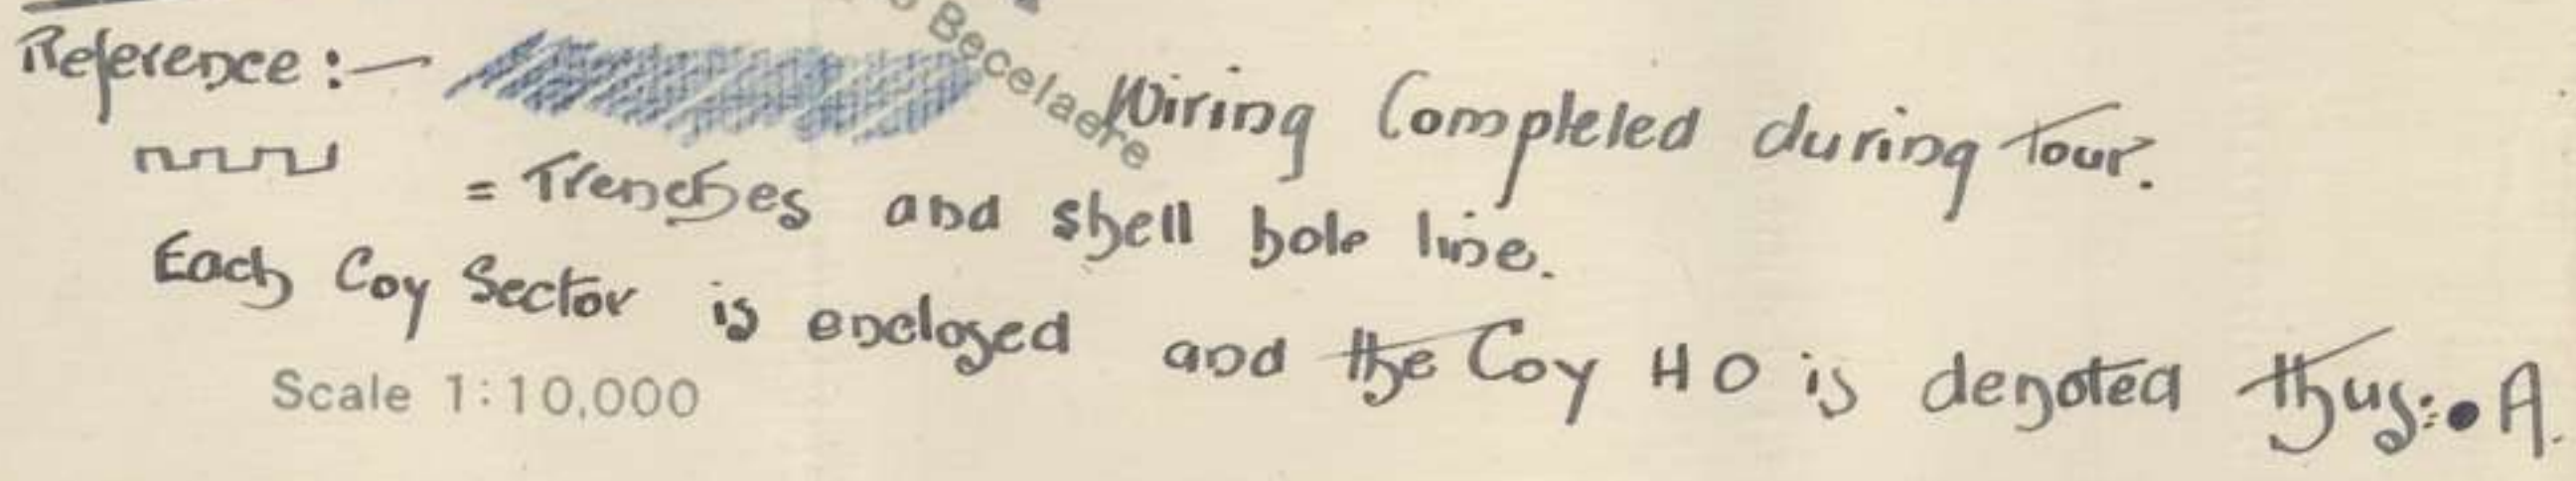 Becelaere
Reference :— Wiring Completed during Tour.
= Trenches and shell hole line.
Each Coy Sector is enclosed and the Coy HQ is denoted thus:● A.
Scale 1:10,000